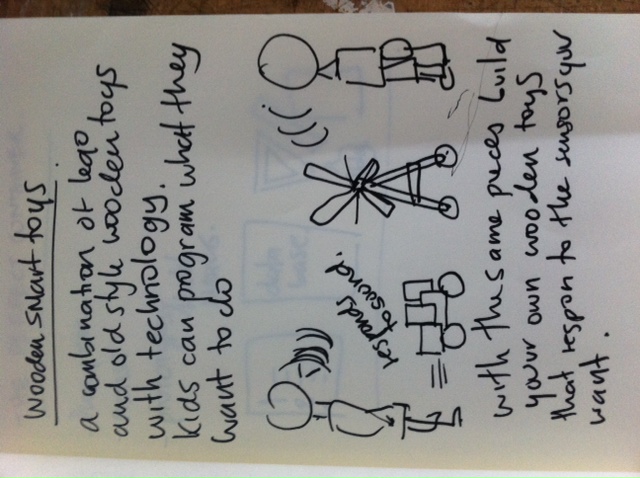 Wooden smart toys.
a combination of lego
and old style wooden toys
with technology.
kids can program what they
want to do
responds
to sound.
with the same pieces build
your own wooden toys
that respon to the sensors you
want.